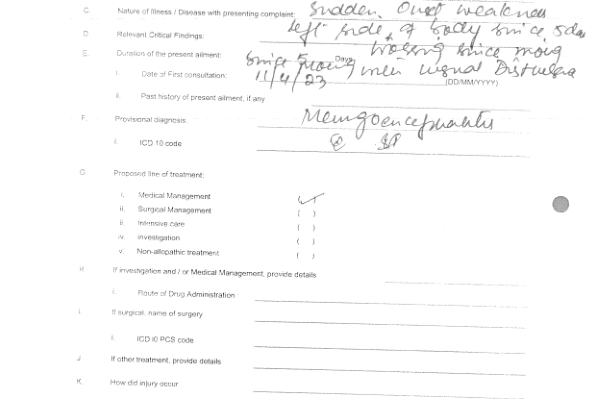 C. Nature of Illness / Disease with presenting complaint: Sudden Onset weakness
D. Relevant Critical Findings: left side of body since
E. Duration of the present ailment: since Days since
i. Date of First consultation: 11/4/23 (DD/MM/YYYY)
ii. Past history of present ailment, if any
F. Provisional diagnosis: Meningoencephalitis
i. ICD 10 code
G Proposed line of treatment:
i. Medical Management
ii. Surgical Management ( )
ii. Intensive care ( )
iv. investigation ( )
v. Non-allopathic treatment ( )
H. If investigation and / or Medical Management, provide details
i. Route of Drug Administration
I. If surgical, name of surgery
i. ICD I0 PCS code
J. If other treatment, provide details
K. How did injury occur